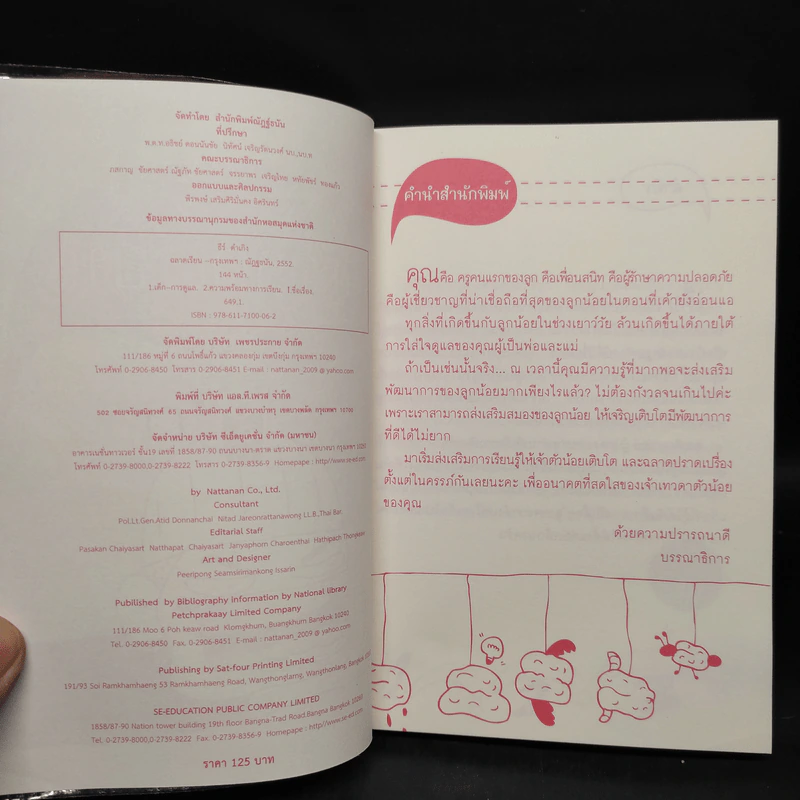 จัดทำโดย สำนักพิมพ์ณัฏฐ์ธนัน
ที่ปรึกษา
พ.ต.ท.อธิชย์ ดอนนันชัย นิทัศน์ เจริญรัตนวงศ์ นบ.,นบ.ท
คณะบรรณาธิการ
ภสกาญ ชัยศาสตร์ ณัฐภัพ ชัยศาสตร์ จรรยาพร เจริญไทย หทัยพัชร์ ทองแก้ว
ออกแบบและศิลปกรรม
พีรพงษ์ เสริมศิริมั่นคง อิศรินทร์
ข้อมูลทางบรรณานุกรมของสำนักหอสมุดแห่งชาติ
ธีร์ ดำเกิง
ฉลาดเรียน -กรุงเทพฯ : ณัฏฐ์ธนัน, 2552
144 หน้า.
1.เด็ก-การดูแล. 2.ความพร้อมทางการเรียน. I.ชื่อเรื่อง.
649.1
ISBN : 978-611-7100-06-2
จัดพิมพ์โดย บริษัท เพชรประกาย จำกัด
111/186 หมู่ที่ 6 ถนนโพธิ์แก้ว แขวงคลองกุ่ม เขตบึงกุ่ม กรุงเทพฯ 10240
โทรศัพท์ 0-2906-8450 โทรสาร 0-2906-8451 E-mail : nattanan_2009 @ yahoo.com
พิมพ์ที่ บริษัท แอล.ที.เพรส จำกัด
502 ซอยจรัญสนิทวงศ์ 65 ถนนจรัญสนิทวงศ์ แขวงบางบำหรุ เขตบางพลัด กรุงเทพฯ 10700
จัดจำหน่าย บริษัท ซีเอ็ดยูเคชั่น จำกัด (มหาชน)
อาคารเนชั่นทาวเวอร์ ชั้น19 เลขที่ 1858/87-90 ถนนบางนา-ตราด แขวงบางนา เขตบางนา กรุงเทพฯ 10260
โทรศัพท์ 0-2739-8000,0-2739-8222 โทรสาร 0-2739-8356-9 Homepape : http//www.se-ed.com
by Nattanan Co., Ltd.
Consultant
Pol.Lt.Gen.Atid Donnanchai Nitad Jareonrattanawong LL.B.,Thai Bar
Editorial Staff
Pasakan Chaiyasart Natthapat Chaiyasart Janyaphorn Charoenthai Hathipach Thongkeaw
Art and Designer
Peeripong Seamsirimankong Issarin
Published by Bibliography information by National library
Petchprakaay Limited Company
111/186 Moo 6 Poh keaw road Klomgkhum, Buangkhum Bangkok 10240
Tel. 0-2906-8450 Fax. 0-2906-8451 E-mail : nattanan_2009 @ yahoo.com
Publishing by Sat-four Printing Limited
191/93 Soi Ramkhamhaeng 53 Ramkhamhaeng Road, Wangthonglarng, Wangthonlang, Bangkok
SE-EDUCATION PUBLIC COMPANY LIMITED
1858/87-90 Nation tower building 19th floor Bangna-Trad Road Bangna Bangkok 10260
Tel. 0-2739-8000,0-2739-8222 Fax. 0-2739-8356-9 Homepape : http//www.se-ed.com
ราคา 125 บาท
คำนำสำนักพิมพ์
คุณคือ ครูคนแรกของลูก คือเพื่อนสนิท คือผู้รักษาความปลอดภัย
คือผู้เชี่ยวชาญที่น่าเชื่อถือที่สุดของลูกน้อยในตอนที่เค้ายังอ่อนแอ
ทุกสิ่งที่เกิดขึ้นกับลูกน้อยในช่วงเยาว์วัย ล้วนเกิดขึ้นได้ภายใต้
การใส่ใจดูแลของคุณผู้เป็นพ่อและแม่
ถ้าเป็นเช่นนั้นจริง... ณ เวลานี้คุณมีความรู้ที่มากพอจะส่งเสริม
พัฒนาการของลูกน้อยมากเพียงไรแล้ว? ไม่ต้องกังวลจนเกินไปค่ะ
เพราะเราสามารถส่งเสริมสมองของลูกน้อย ให้เจริญเติบโตมีพัฒนาการ
ที่ดีได้ไม่ยาก
มาเริ่มส่งเสริมการเรียนรู้ให้เจ้าตัวน้อยเติบโต และฉลาดปราดเปรื่อง
ตั้งแต่ในครรภ์กันเลยนะคะ เพื่ออนาคตที่สดใสของเจ้าเทวดาตัวน้อย
ของคุณ
ด้วยความปรารถนาดี
บรรณาธิการ